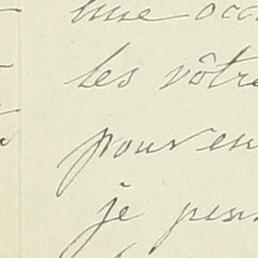 une occa
les vôtre
pour en
je pens